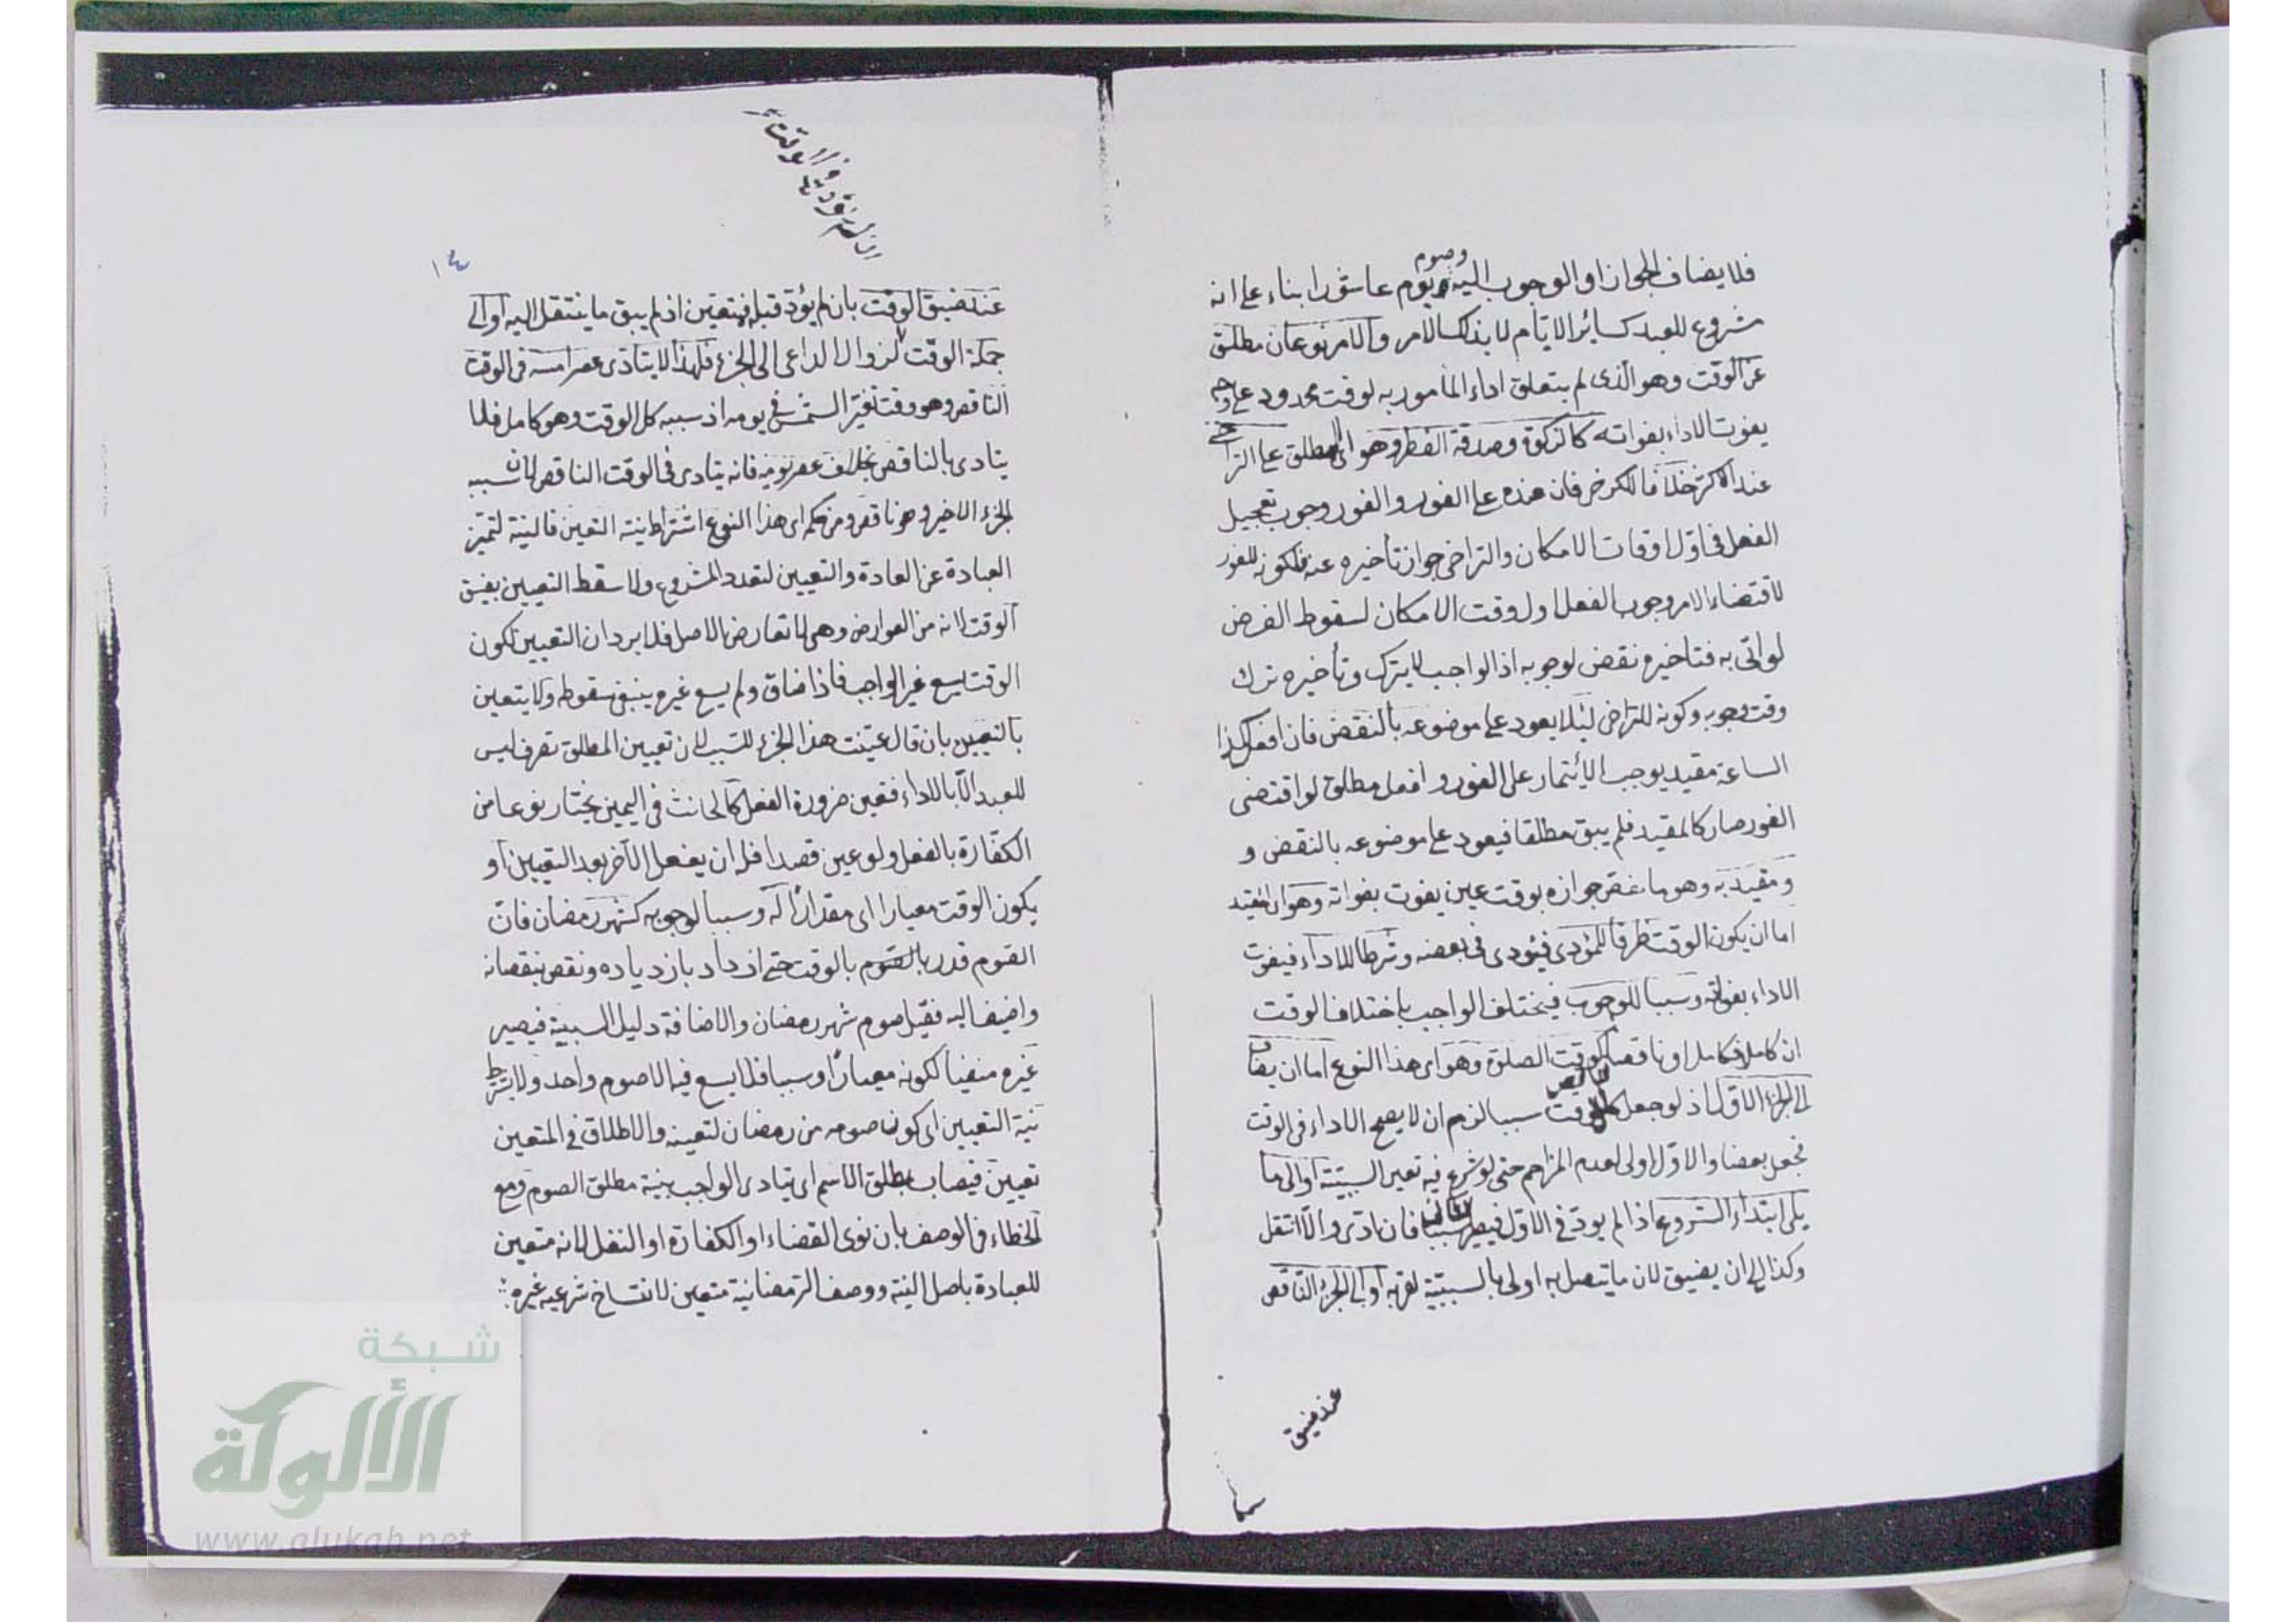 وصوم
فلا يضاف الجواز او الوجوب اليه ويوم عاشورا بناء على انه
مشروع للعبد كسائر الايام لا بذلك الامر والامر نوعان مطلق
عن الوقت وهو الذى لم يتعلق اداء المأمور به لوقت محدود على وجه
يفوت الاداء بفواته كالزكوة وصدقة الفطر وهو اى المطلق على التراخى
عند الاكثر خلافا للكرخى فان عنده على الفور والفور وجوب تعجيل
الفعل فى اول اوقات الامكان والتراخى جواز تأخيره عنه فلكونه للفور
لاقتضاء الامر وجوب الفعل اول وقت الامكان لسقوط الفرض
لو اتى به فتاخيره نقض لوجوبه اذ الواجب لا يترك وتأخيره ترك
وقت وجوبه وكونه للتراخى لئلا يعود على موضوعه بالنقض فان افعل كذا
الساعة مقيد يوجب الائتمار على الفور وافعل مطلق لو اقتضى
الفور صار كالمقيد فلم يبق مطلقا فيعود على موضوعه بالنقض و
ومقيد به وهو ما جوازه بوقت عين يفوت بفواته وهو اى المقيد
اما ان يكون الوقت ظرفا للمؤدى فيؤدى فى بعضه وشرطا للاداء فيفوت
الاداء بفواته وسببا للوجوب فيختلف الواجب باختلاف الوقت
ان كاملا فكامل او ناقصا كوقت الصلوة وهو اى هذا النوع اما ان يضاف
الى الجزء الاول اذ لو جعل كل الوقت سببا لزم ان لا يصح الاداء فى الوقت
فجعل بعضا والاول اولى لعدم المزاحم حتى لو شرع فيه تعين السببية او الى ما
يلى ابتداء الشروع اذا لم يودّ فى الاول فيصير سببا فان تادى والا انتقل
وكذا الى ان يضيق لان ما يتصل به اولى بالسببية لقربه او الى الجزء الناقص
عند ضيق
١٤
عند تضيق الوقت بان لم يؤد قبله فيتعين اذ لم يبق ما ينتقل اليه او الى
جملة الوقت لزوال الداعى الى الجزء فلهذا لا يتادى عصر امسه فى الوقت
الناقص وهو وقت تغير الشمس فى يومه اذ سببه كل الوقت وهو كامل فلا
يتادى بالناقص بخلاف عصر يومه فانه يتادى فى الوقت الناقص لان سببه
الجزء الاخير وهو ناقص ومن حكم اى هذا النوع اشتراط نية التعين فالنية لتميز
العبادة عن العادة والتعيين لتعدد المشروع ولا سقط التعيين بضيق
الوقت لانه من العوارض وهى لا تعارض الاصل فلا يرد ان التعيين لكون
الوقت يسع غير الواجب فاذا ضاق ولم يسع غيره ينبغى سقوطه ولا يتعين
بالتعيين بان قال عينت هذا الجزء للسبب لان تعيين المطلق تصرف ليس
للعبد الا بالاداء فتعين ضرورة الفعل كالحانث فى اليمين يختار نوعا من
الكفارة بالفعل ولو عين قصدا فله ان يفعل الآخر بعد التعيين او
يكون الوقت معيارا اى مقدارا له وسببا لوجوبه كشهر رمضان فان
الصوم قدر بالصوم بالوقت حتى ازداد بازدياده ونقص بنقصانه
واضيف اليه فقيل صوم شهر رمضان والاضافة دليل السببية فيصير
غيره منفيا لكونه معيارا وسببا فلا يسع فيه الا صوم واحد ولا يشترط
نية التعيين اى كون صومه من رمضان لتعينه والاطلاق فى المتعين
تعيين فيصاب بمطلق الاسم اى يتادى الواجب بنية مطلق الصوم ومع
الخطاء فى الوصف بان نوى القضاء او الكفارة او النفل لانه متعين
للعبادة باصل النية ووصف الرمضانية متعين لانتساخ شرعيه غيره
شبكة
الألوكة
www.alukah.net